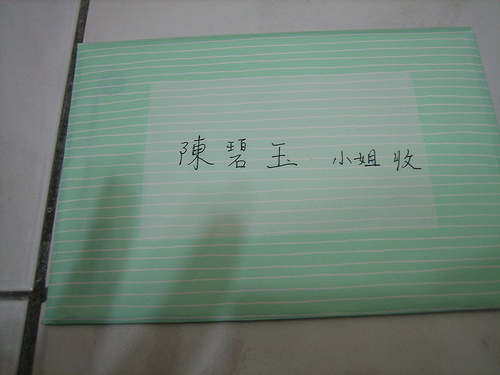 陳碧玉 小姐收